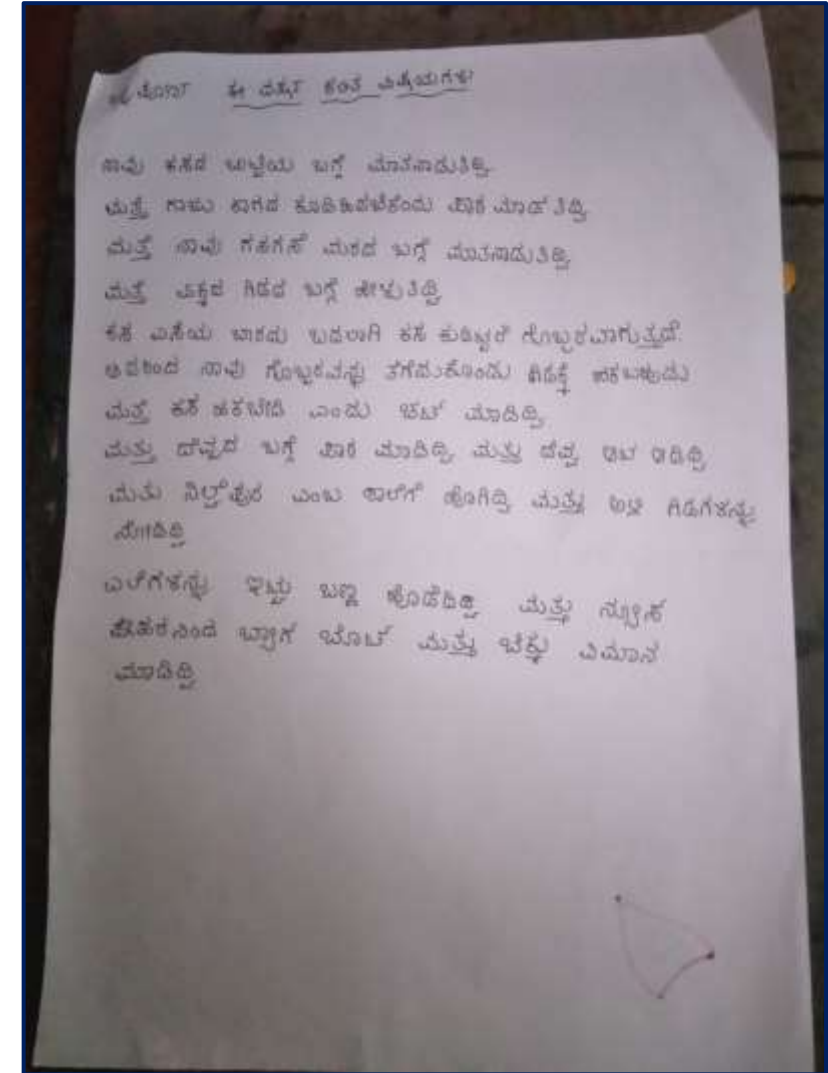 ಈ ವರ್ಷ ಕಂತ ವಿಷಯಗಳು
ನಾವು ಕಸದ ಬುಟ್ಟಿಯ ಬಗ್ಗೆ ಮಾತನಾಡುತಿದ್ವಿ
ಮತ್ತೆ ಗಾಜು ಕಾಗದ ಪಾಠ ಮಾಡ್ ತಿದ್ವಿ
ಮತ್ತೆ ನಾವು ಗಸಗಸೆ ಮರದ ಬಗ್ಗೆ ಮಾತನಾಡುತಿದ್ವಿ
ಮತ್ತೆ ಎಕ್ಕದ ಗಿಡದ ಬಗ್ಗೆ ಹೇಳುತಿದ್ವಿ
ಕಸ ಎಸೆಯ ಬಾರದು ಬದಲಾಗಿ ಕಸ ಕುಡಿಟ್ಟರೆ ಗೊಬ್ಬರವಾಗುತ್ತದೆ.
ಅದರಿಂದ ನಾವು ಗೊಬ್ಬರವನ್ನು ತೆಗೆದುಕೊಂಡು ಗಿಡಕ್ಕೆ ಹಕಬಹುದು
ಮತ್ತೆ ಕಸ ಹಕಬೇಡಿ ಎಂದು ಚಟ್ ಮಾಡಿದ್ವಿ
ಮತ್ತು ದೆವ್ವದ ಬಗ್ಗೆ ಪಾಠ ಮಾಡಿದ್ವಿ ಮತ್ತು ದೆವ್ವ ಆಟ ಆಡಿದ್ವಿ
ಮತು ಎಂಬ ಶಾಲೆಗೆ ಹೊಗಿದ್ವಿ ಮತ್ತು ಅಲ್ಲಿ ಗಿಡಗಳನ್ನು
ನೋಡಿದ್ವಿ
ಎಲೆಗಳನ್ನು ಇಟ್ಟು ಬಣ್ಣ ಹೊಡೆದಿದ್ವಿ ಮತ್ತು ನ್ಯೂಸ
ಪೇಪರನಿಂದ ಬ್ಯಾಗ ಬೊಟ್ ಮತ್ತು ಚಿಕ್ಕು ವಿಮಾನ
ಮಾಡಿದ್ವಿ